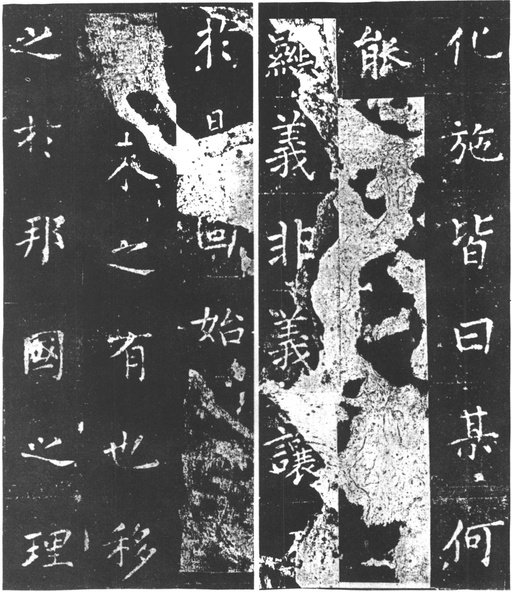 化施皆曰某何
能
義非義讓
於是回始
之有也移
之於邦國之理